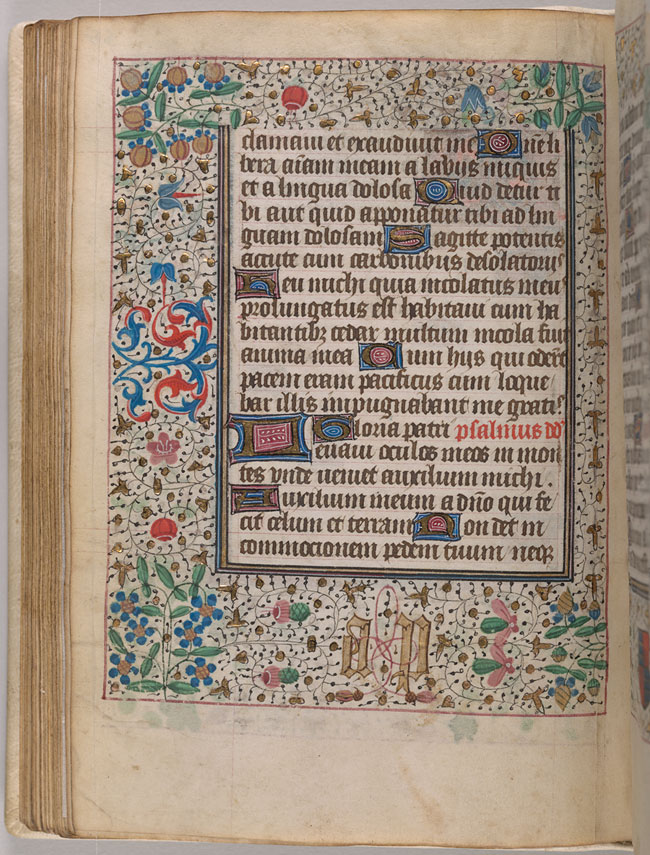 clamaui et exaudiuit me Dñe li
bera aīam meam a labijs iniquis
et a lingua dolosa Quid detur ti
bi aut quid apponatur tibi ad lin
guam dolosam Sagitte potentis
accute cum carbonibus desolatorijs
Heu michi quia incolatus meus
prolongatus est habitaui cum ha
bitantibꝫ cedar multum incola fuit
anima mea Cum hijs qui oderūt
pacem eram pacificus cum loque
bar illis inpugnabant me gratis
Gloria patri psalmus
Leuaui oculos meos in mon
tes vnde ueniet auxilium michi.
Auxilium meum a dño qui fe
cit celum et terram Non det in
commocionem pedem tuum neqꝫ